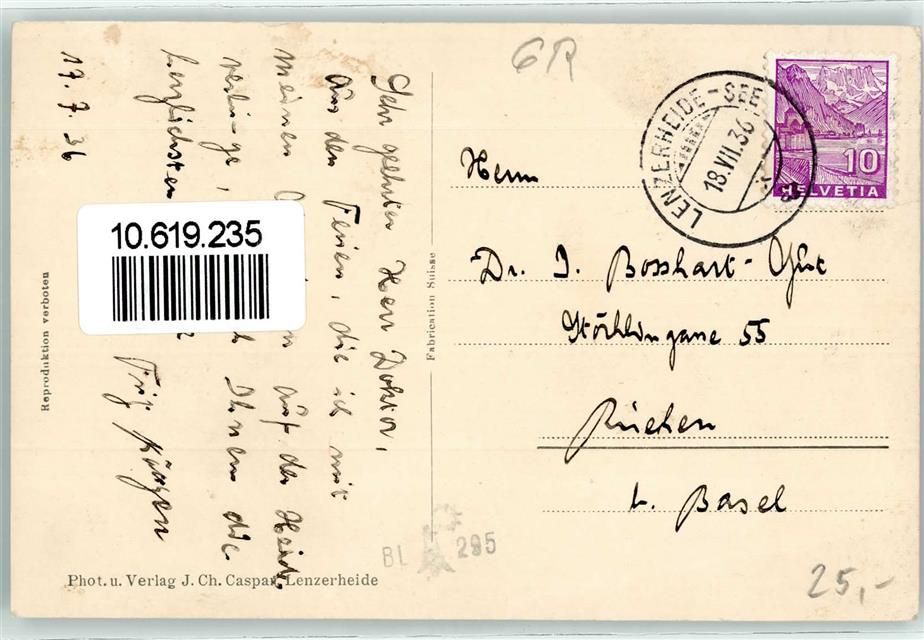 17. 7. 36
Sehr geehrter Herr Doktor,
Aus den Ferien, die ich mit
meinen auf der Heide
verbringe, Ihnen die
herzlichsten
Fritz
10.619.235
Reproduktion verboten
Fabrication Suisse
Phot. u. Verlag J. Ch. Caspar, Lenzerheide
GR
LENZERHEIDE-SEE
18.VII.36
10
HELVETIA
Herrn
Dr. J. Bosshart-
55
Riehen
b. Basel
BL 295
25,-